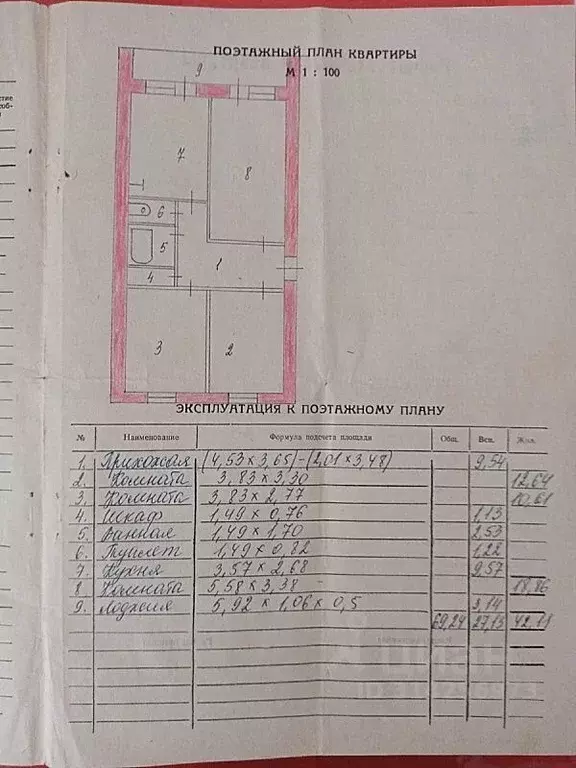 ПОЭТАЖНЫЙ ПЛАН КВАРТИРЫ
М 1 : 100
9
7
8
6
5
1
4
3
2
ЭКСПЛУАТАЦИЯ К ПОЭТАЖНОМУ ПЛАНУ
№ Наименование Формула подсчета площади Общ. Всп. Жил.
1. Прихожая (4,53 × 3,65) – (2,01 × 3,48) 9,54
2. Комната 3,83 × 3,30 12,64
3. Комната 3,83 × 2,77 10,61
4. Шкаф 1,49 × 0,76 1,13
5. Ванная 1,49 × 1,70 2,53
6. Туалет 1,49 × 0,82 1,22
7. Кухня 3,57 × 2,68 9,57
8 Комната 5,58 × 3,38 18,86
9. Лоджия 5,92 × 1,06 × 0,5 3,14
69,24 27,13 42,11